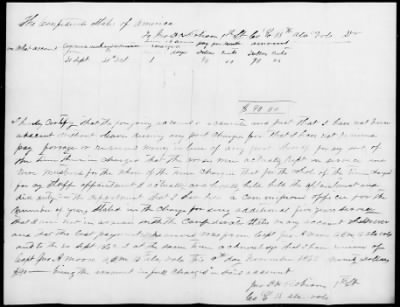 The Confederate States of America
To Jno. A. 1st Lt Co. E 18th Ala Vols Dr
On what account Commencement Expiration months days pay per month amount
Dollars cents Dollars cents
30 Sept 31st Oct 1 90 00 90 00
$90.00
I hereby certify that the foregoing account is accurate and just that I have not been
absent without leave during any part charged for that I have not received
pay forage or received money in lieu of any part thereof for any part of
the time therein charged that the horses were actually kept in service and
were mustered for the whole of the time charged that for the whole of the time charged
for my staff appointment I actually and legally held the appointment and
did duty in the department that I have been a commissioned officer for the
number of years stated in the charge for every additional five years service
that I am not in arrears with the Confederate States on any account whatsoever
and that the last payment I received was from Capt Jno. A Moore
and to the 30 Sept 186 I at the same time acknowledge that I have received of
Capt Jno. A Moore this day of November 1862 ninety dollars
being the amount in full charged in this account
Jno. A 1st Lt
Co. E 18 Ala. Vols